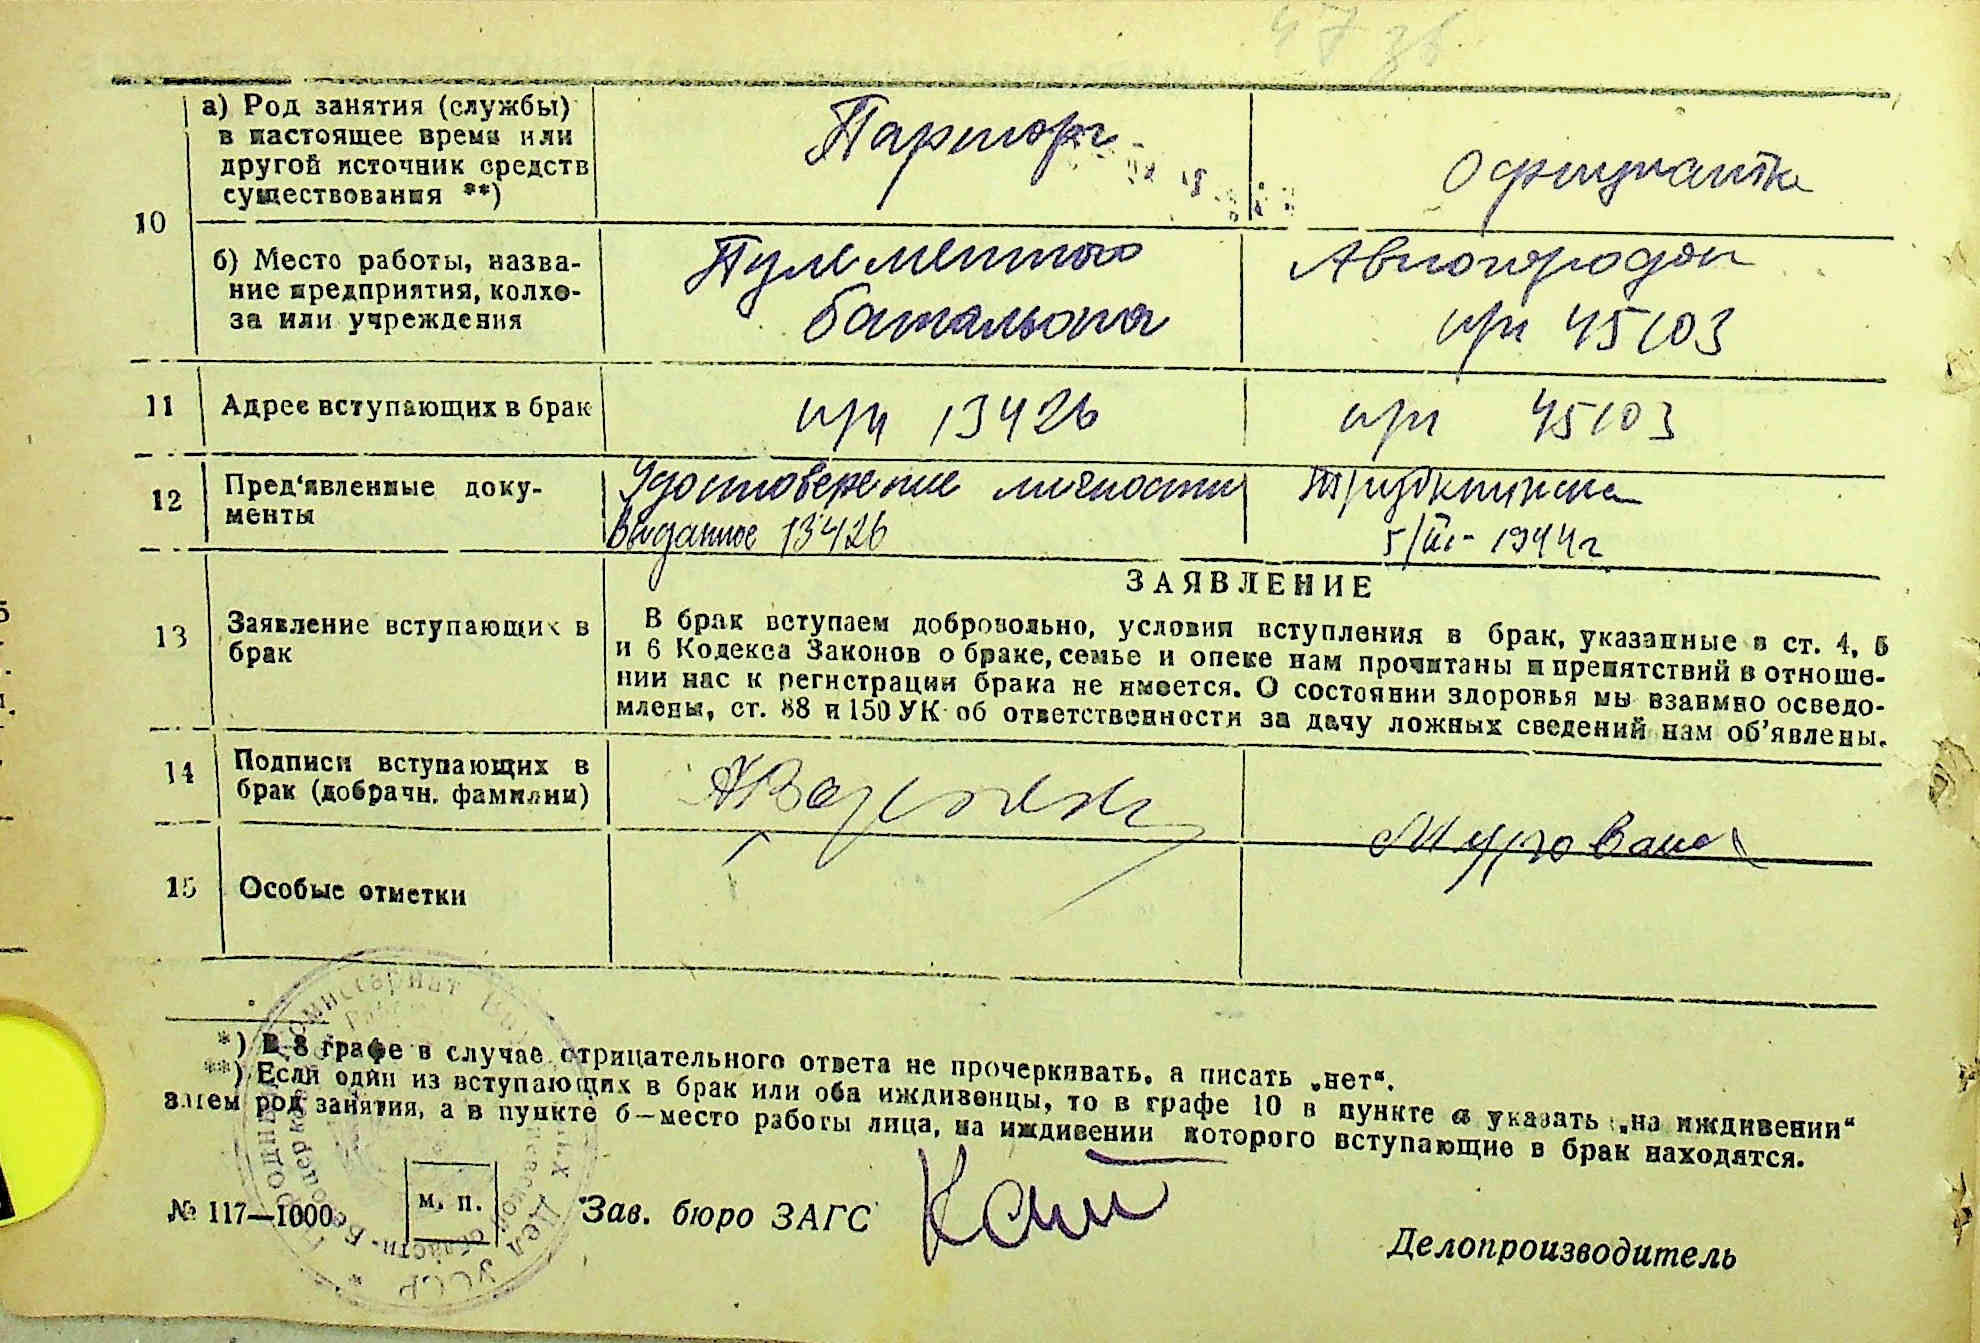 а) Род занятия (службы)
в настоящее время или
другой источник средств
существования **)
Парторг
Официантка
10
б) Место работы, назва-
ние предприятия, колхо-
за или учреждения
Пулеметного
батальона
Авиагородок
п/п 45103
11 Адрес вступающих в брак
п/п 13426
п/п 45103
12 Пред'явленные доку-
менты
Удостоверение личности
выданное 13426
5/III- 1944г
13 Заявление вступающих в
брак
ЗАЯВЛЕНИЕ
В брак вступаем добровольно, условия вступления в брак, указанные в ст. 4, 5
и 6 Кодекса Законов о браке, семье и опеке нам прочитаны и препятствий в отноше-
нии нас к регистрации брака не имеется. О состоянии здоровья мы взаимно осведо-
млены, ст. 88 и 150 УК об ответственности за дачу ложных сведений нам об'явлены.
14 Подписи вступающих в
брак (добрачн. фамилии)
15 Особые отметки
*) В 8 графе в случае отрицательного ответа не прочеркивать, а писать „нет“.
**) Если один из вступающих в брак или оба иждивенцы, то в графе 10 в пункте а указать „на иждивении“
затем род занятия, а в пункте б—место работы лица, на иждивении которого вступающие в брак находятся.
№ 117—1000
м. п.
Зав. бюро ЗАГС
Делопроизводитель